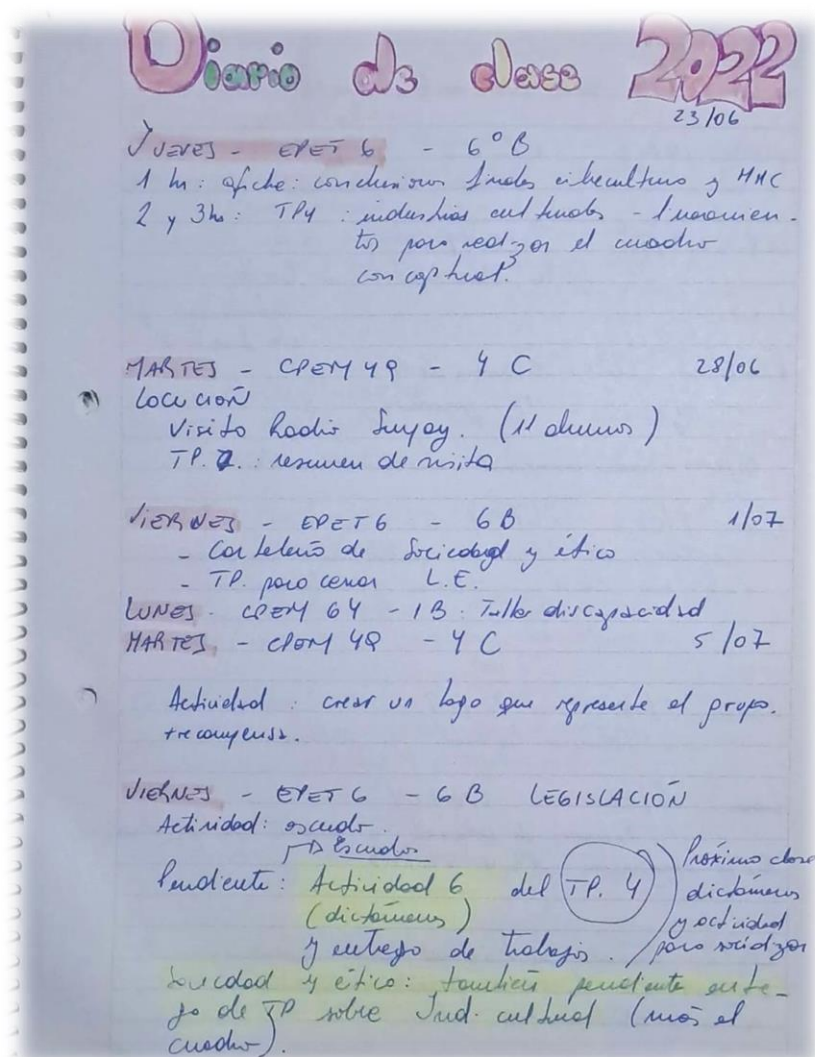 Diario de clase 2022
23/06
JUEVES - EPET 6 - 6° B
1 hs: afiche: conclusiones finales cibercultura y MMC
2 y 3hs: TP4: industrias culturales - lineamien-
tos para realizar el cuadro
conceptual.
MARTES - CPEM 49 - 4 C 28/06
LOCUCIÓN
Visita Radio (11 alumnos)
TP. 2.: resumen de visita
VIERNES - EPET 6 - 6 B 1/07
- Cartelera de Sociedad y ética
- TP. para cerrar L.E.
LUNES - CPEM 64 - 1B: Taller discapacidad
MARTES - CPEM 49 - 4 C 5/07
Actividad: crear un logo que represente el grupo.
+recompensa.
VIERNES - EPET 6 - 6 B LEGISLACIÓN
Actividad: escudo.
Escudos
Pendiente: Actividad 6 del TP. 4
(dictámenes)
y entrega de trabajos.
Próxima clase
dictámenes
y actividad
para socializar
Sociedad y ética: también pendiente entre-
ga de TP sobre Ind. cultural (más el
cuadro).